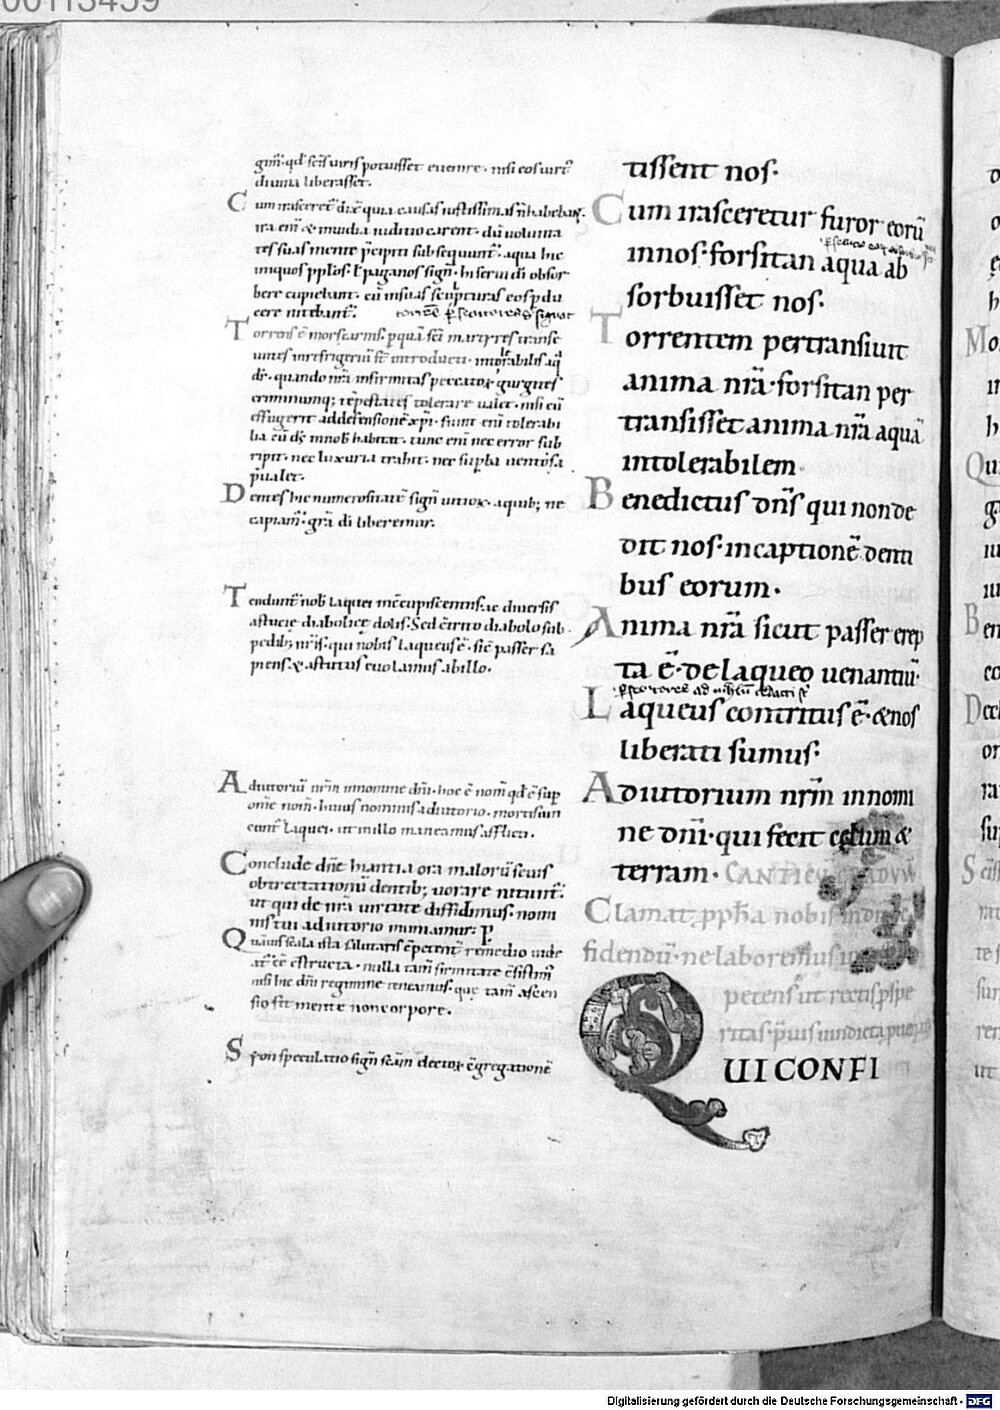 00113459
gim̅· qd̅ sc̅is uiris potuisset euenire· nisi eos uirt᷒
diuina liberasset·
Cum irasceret̅ dix̅ quia causas iustissimas n̅ habebant·
ira eni̅ & inuidia iuditio carent· du̅ uolunta
tes suas mente p̅cipiti subsequunt̅· aqua hic
iniquos pp̅los· t̅ paganos sign̅· hi serui di̅ obsor
bere cupiebant· cu̅ in suas scripturas eos p̅du
cere nitebant̅·
Torrens e̅ mors carnis· p qua̅ sc̅i martyres transe
untes in refrigeriu̅ st̅ introducti· intol̅rabilis aq̅
d̅r· quando nr̅a infirmitas peccatoꝝ gurgites
criminumq; te̅pestates tolerare ualet· nisi cu̅
effugerit ad defensione̅ xp̅i· fiunt eni̅ tolerabi
lia cu̅ d̅s in nob̅ habitat· tunc eni̅ nec error sub
ripit· nec luxuria trahit· nec sup̅bia uentosa
p̅ualet·
Dentes hic numerositate̅ sign̅ uitioꝝ· a quib; ne
capiam̅· gr̅a di̅ liberemur·
Tendunt̅ nob̅ laquei in c̅cupiscentiis· ac diuersis
astucie diabolicę dolis· Sed c̅trito diabolo sub
pedib; nr̅is· qui nobis laqueus e̅· sic̅ passer sa
piens· & astutus euolamus ab illo·
Adiutoriu̅ nr̅m in nomine dn̅i· hoc e̅ nom̅ qd̅ e̅ sup
om̅e nom̅· huius nominis adiutorio· mortis uin
cunt̅ laquei· ut in illo maneamus afflicti·
Conclude dn̅e hiantia ora maloru̅ seuis
obtrectationu̅ dentib; uorare nitunt̅·
ut qui de nr̅a uirtute diffidimus· nomi
nis tui adiutorio muniamur· p
Quauis scala ista salutaris c̅petent̅ remedio uide
at̅ c̅e c̅structa· nulla tam̅ firmitate c̅sistim̅
nisi hic dn̅i regimine teneamus· quę tam̅ ascen
sio fit mente non corpore·
Syon speculatio sign̅ sc̅am electoꝝ c̅gregatione̅
tissent nos·
Cum irasceretur furor eoru̅
in nos· forsitan aqua ab
sorbuisset nos·
Torrentem pertransiuit
anima nr̅a· forsitan per
transisset anima nr̅a aqua̅
intolerabilem·
Benedictus dn̅s qui non de
dit nos· in captione̅ denti
bus eorum·
Anima nr̅a sicut passer erep
ta e̅· de laqueo uenantiu̅·
Laqueus contritus e̅· & nos
liberati sumus·
Adiutorium nr̅m in nomi
ne dn̅i· qui fecit cęlum &
terram· CANTICV̅ GRADVV̅
Clamat pp̅h̅a nobis in dn̅o c̅
fidendu̅· ne laboremus
petens ut rectis p̅spe
ritas· p̅uis uindicta
QUI CONFI
Digitalisierung gefördert durch die Deutsche Forschungsgemeinschaft - DFG